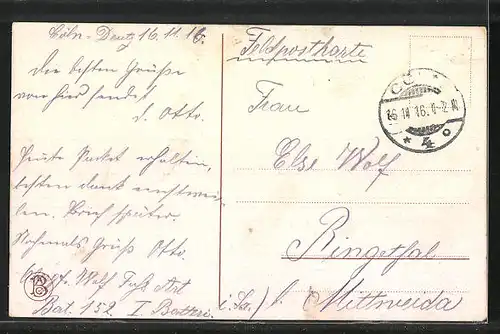 Cöln-Deutz 16.11.16.
Die besten Grüße
von hier sendet
d. Otto.
Heute Packet erhalten,
besten dank einstwei-
len. Brief später.
Nochmals Gruß Otto.
Wolf Fuß Art
Bat. 152 I. Batteri.
Feldpostkarte
Frau
Else Wolf
Ringethal
i. Sa.) b. Mittweida
CÖLN
16 11 16. 11-12 N
* 4 o